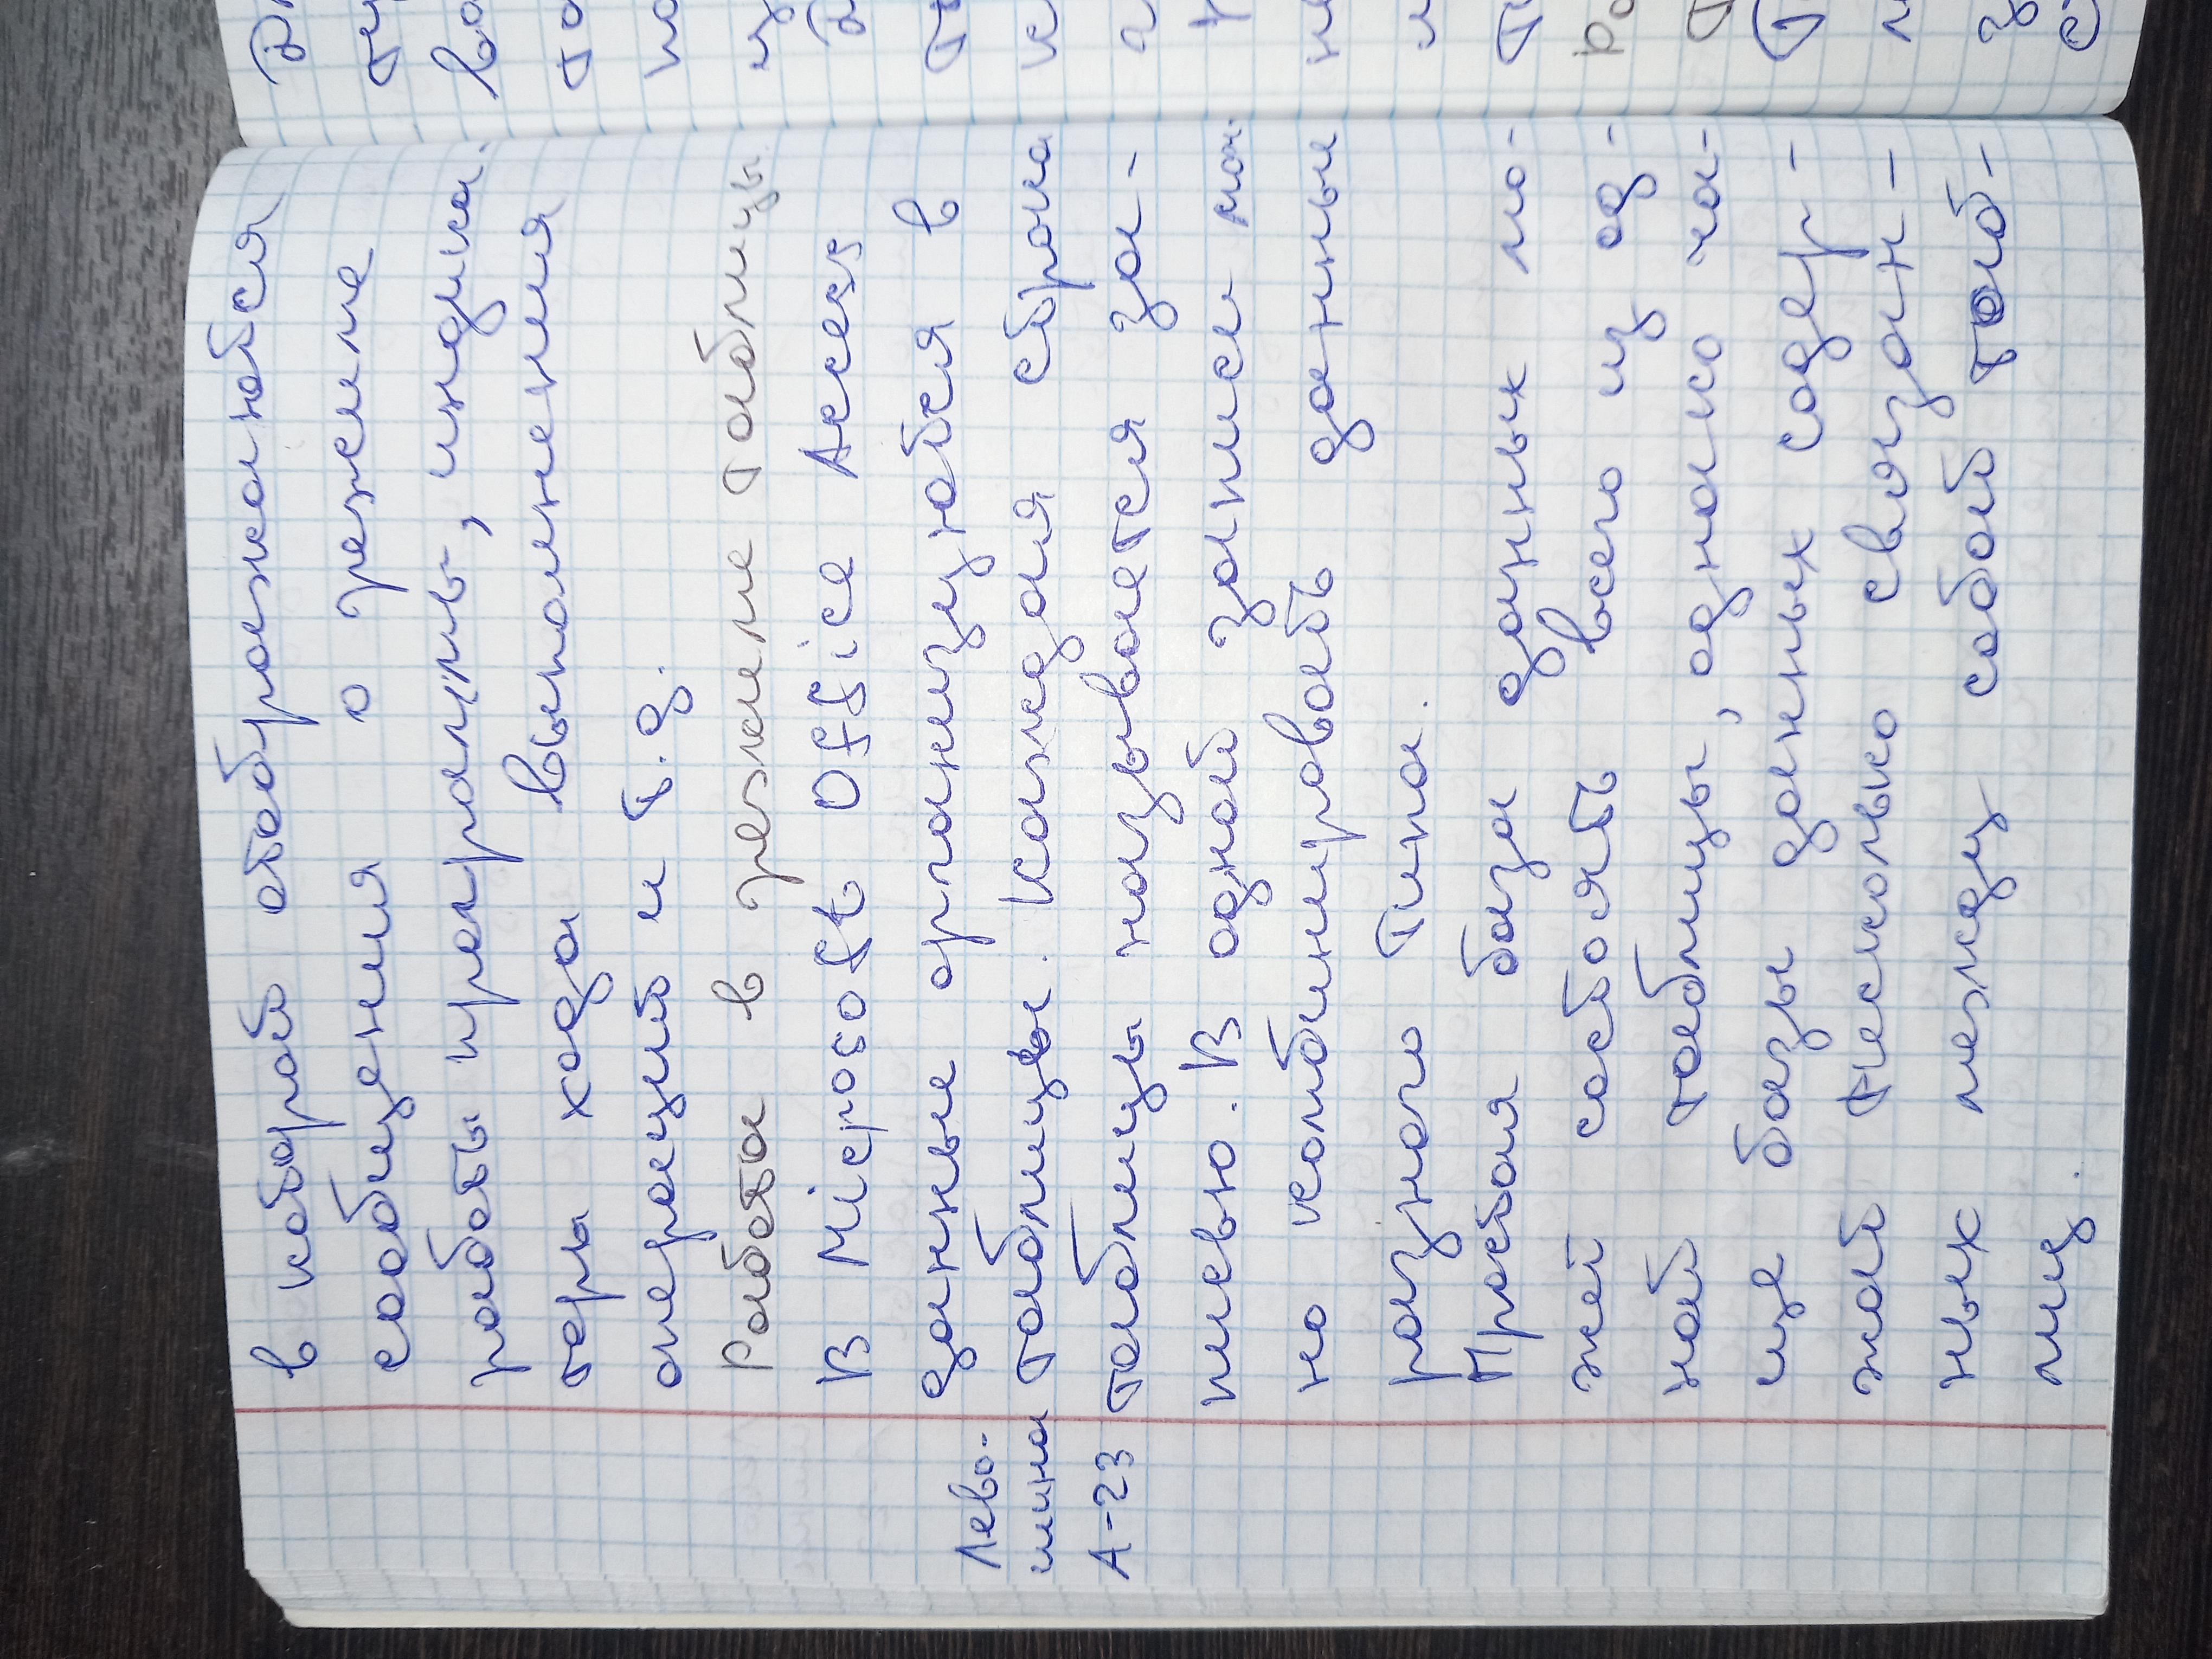 в которой отображаются
сообщения о режиме
работы программы, индика-
торы хода выполнения
операций и т.д.
Работа в режиме таблицы
В Microsoft Office Access
данные организуются в
таблицы. Каждая строка
таблицы называется за-
писью. В одной записи мож-
но комбинировать данные
разного типа.
Простая база данных мо-
жет состоять всего из од-
ной таблицы, однако ча-
ще базы данных содер-
жат несколько связан-
ных между собой таб-
лиц.
Лево-
шина
А-23